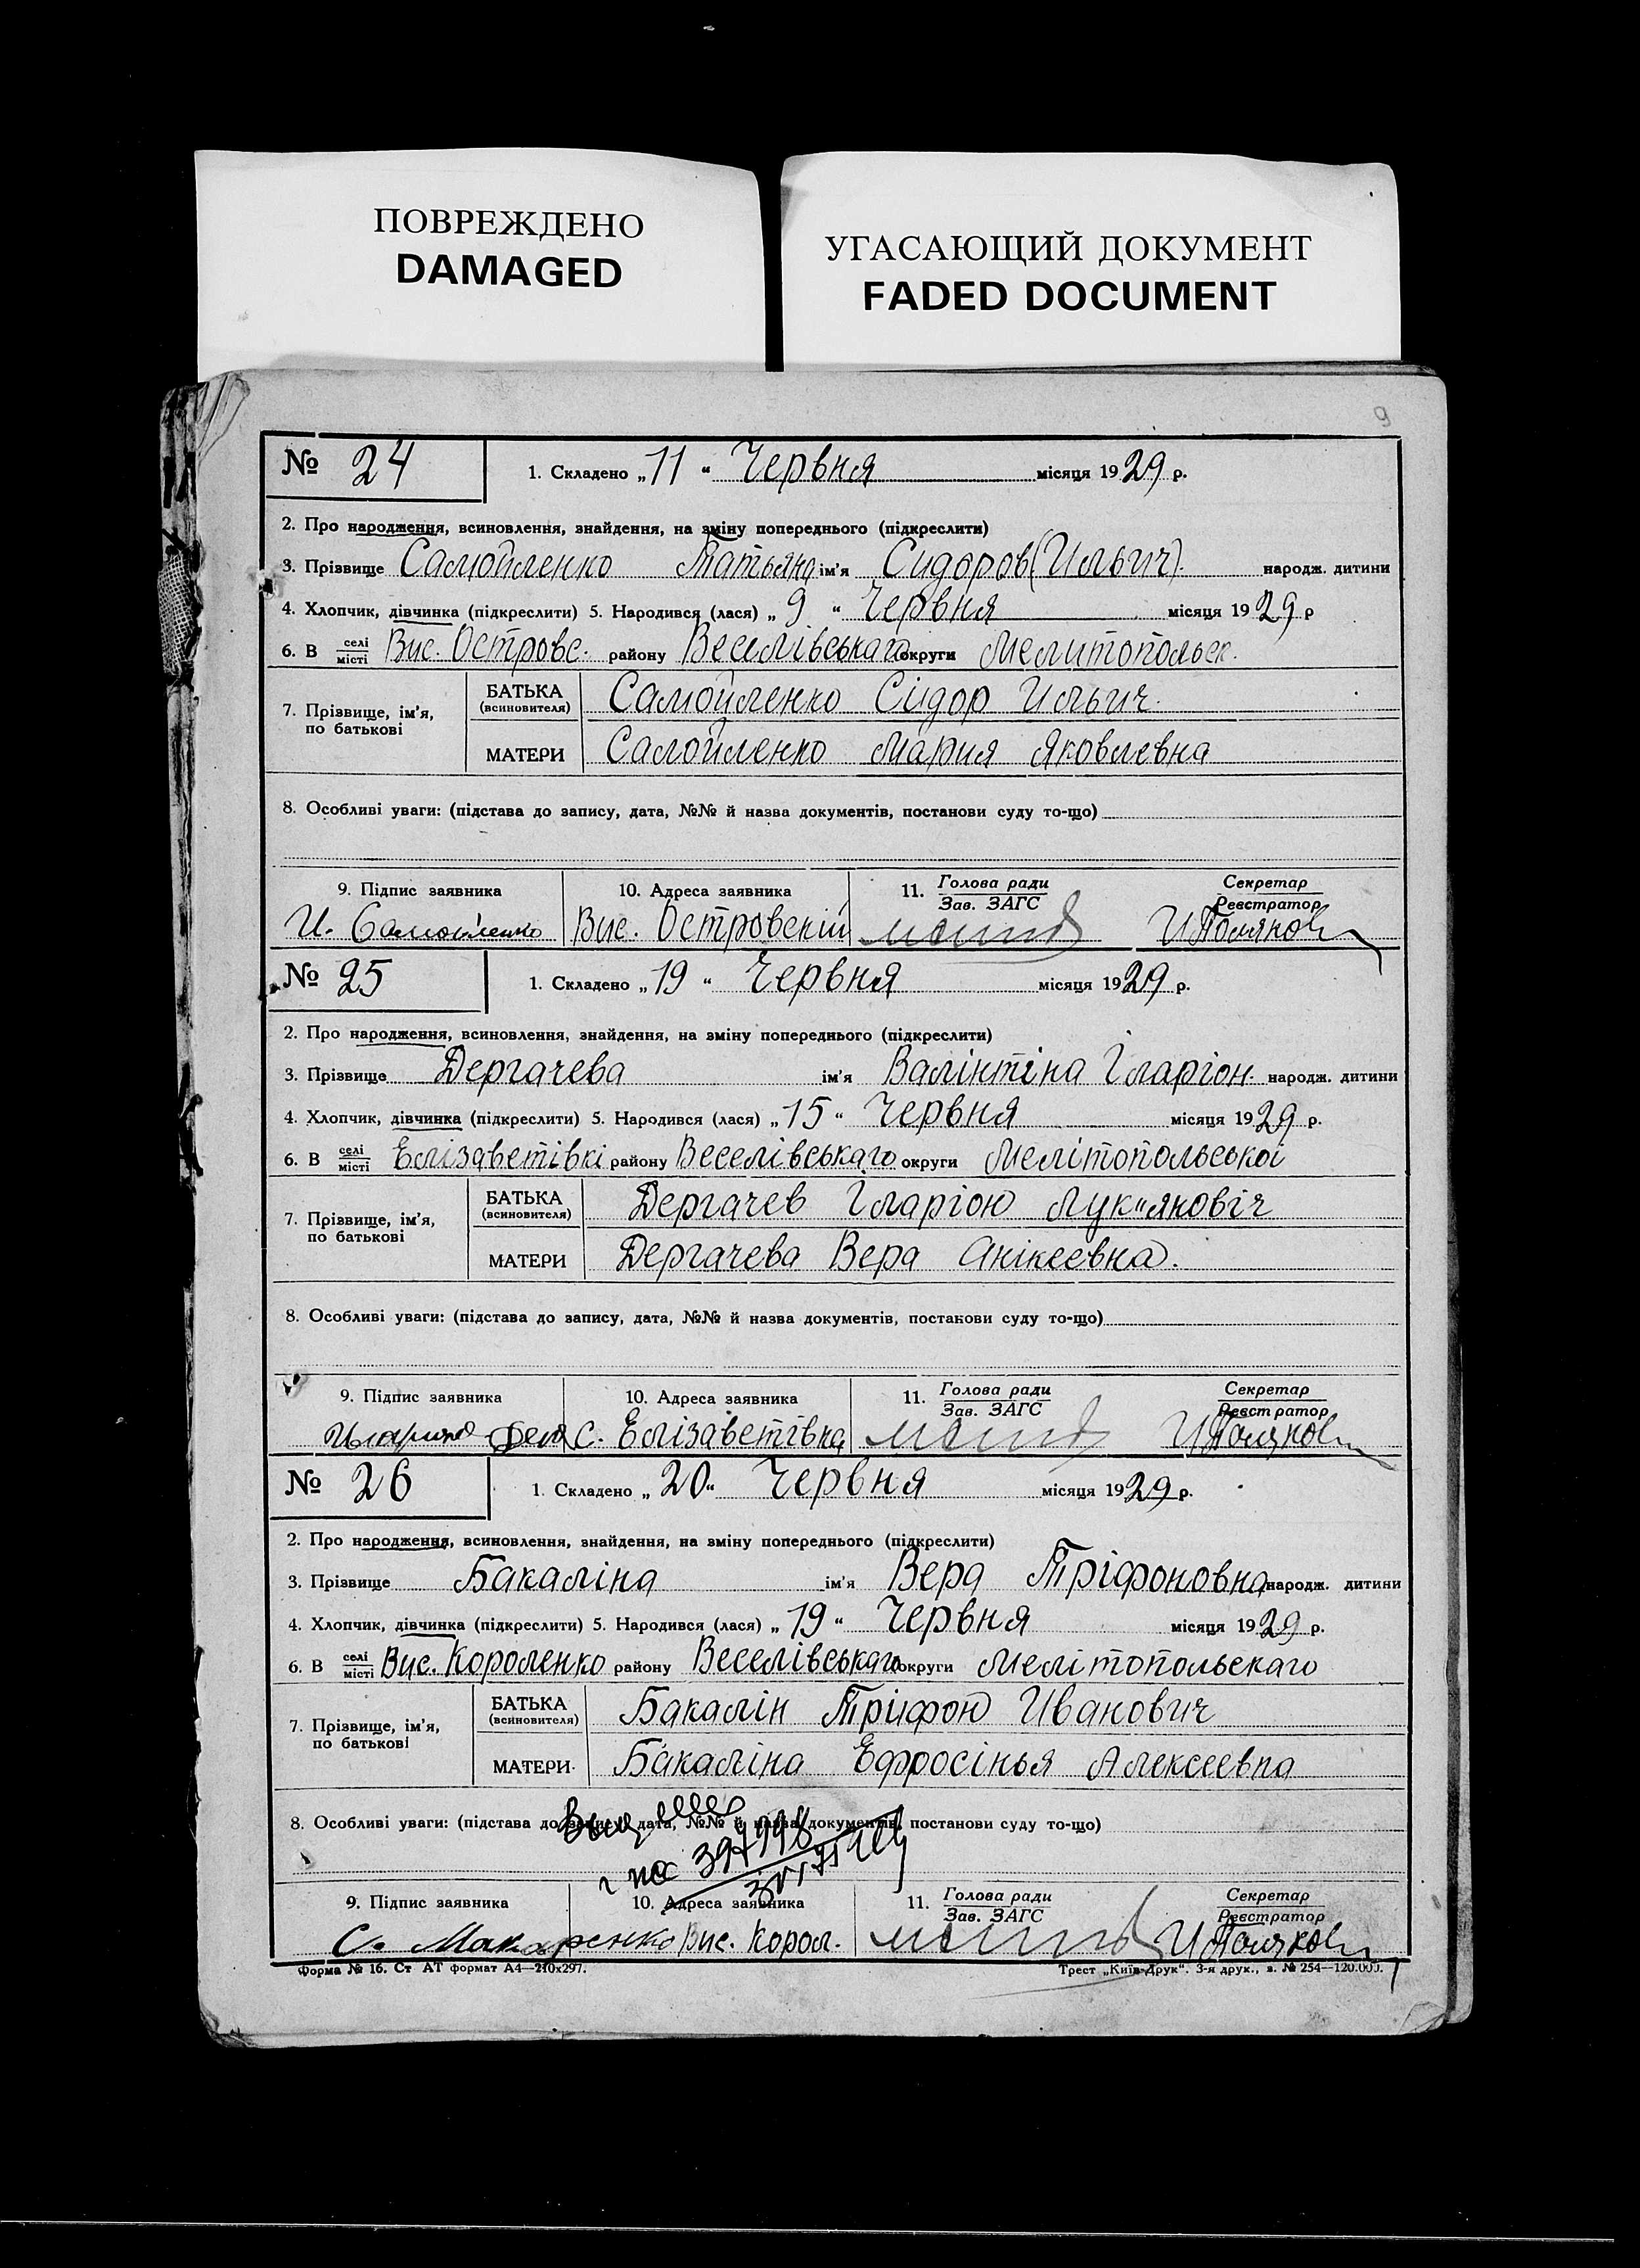 ПОВРЕЖДЕНО
DAMAGED
УГАСАЮЩИЙ ДОКУМЕНТ
FADED DOCUMENT
9
№ 24 1. Складено „11“ Червня місяця 1929 р.
2. Про народження, всиновлення, знайдення, на зміну попереднього (підкреслити)
3. Прізвище Самойленко Татьяна ім'я Сидоров(Ильич). народж. дитини
4. Хлопчик, дівчинка (підкреслити) 5. Народився (лася) „9“ Червня місяця 1929 р
6. В селі місті Вис. Островс. району Веселівськаго округи Мелитопольск.
7. Прізвище, ім'я, по батькові
БАТЬКА (всиновителя) Самойленко Сідор Ильич.
МАТЕРИ Самойленко Мария Яковлевна
8. Особливі уваги: (підстава до запису, дата, №№ й назва документів, постанови суду то-що)
9. Підпис заявника 10. Адреса заявника 11. Голова ради Зав. ЗАГС Секретар Реєстратор
И. Самойленко Вис. Островскій ИПоляков
№ 25 1. Складено „19“ Червня місяця 1929 р.
2. Про народження, всиновлення, знайдення, на зміну попереднього (підкреслити)
3. Прізвище Дергачева ім'я Валінтіна Іларіон. народж. дитини
4. Хлопчик, дівчинка (підкреслити) 5. Народився (лася) „15“ Червня місяця 1929 р.
6. В селі місті Елізаветівкі району Веселівськаго округи Мелітопольської
7. Прізвище, ім'я, по батькові
БАТЬКА (всиновителя) Дергачев Іларіон Лук"яновіч
МАТЕРИ Дергачева Вера Анікеевна.
8. Особливі уваги: (підстава до запису, дата, №№ й назва документів, постанови суду то-що)
9. Підпис заявника 10. Адреса заявника 11. Голова ради Зав. ЗАГС Секретар Реєстратор
с. Елізаветівка ИПоляков
№ 26 1. Складено „20“ Червня місяця 1929 р.
2. Про народження, всиновлення, знайдення, на зміну попереднього (підкреслити)
3. Прізвище Бакаліна ім'я Вера Тріфоновна народж. дитини
4. Хлопчик, дівчинка (підкреслити) 5. Народився (лася) „19“ Червня місяця 1929 р.
6. В селі місті Вис. Короленко району Веселівськаго округи Мелітопольскаго
7. Прізвище, ім'я, по батькові
БАТЬКА (всиновителя) Бакалін Тріфон Иванович
МАТЕРИ Бакаліна Ефросінья Алексеевна
8. Особливі уваги: (підстава до запису, дата, №№ й назва документів, постанови суду то-що)
9. Підпис заявника 10. Адреса заявника 11. Голова ради Зав. ЗАГС Секретар Реєстратор
С. Макаренко Вис. Корол. ИПоляков
Форма № 16. Ст АТ формат А4—210х297. Трест „Київ-Друк“. 3-я друк., з. № 254—120.000.